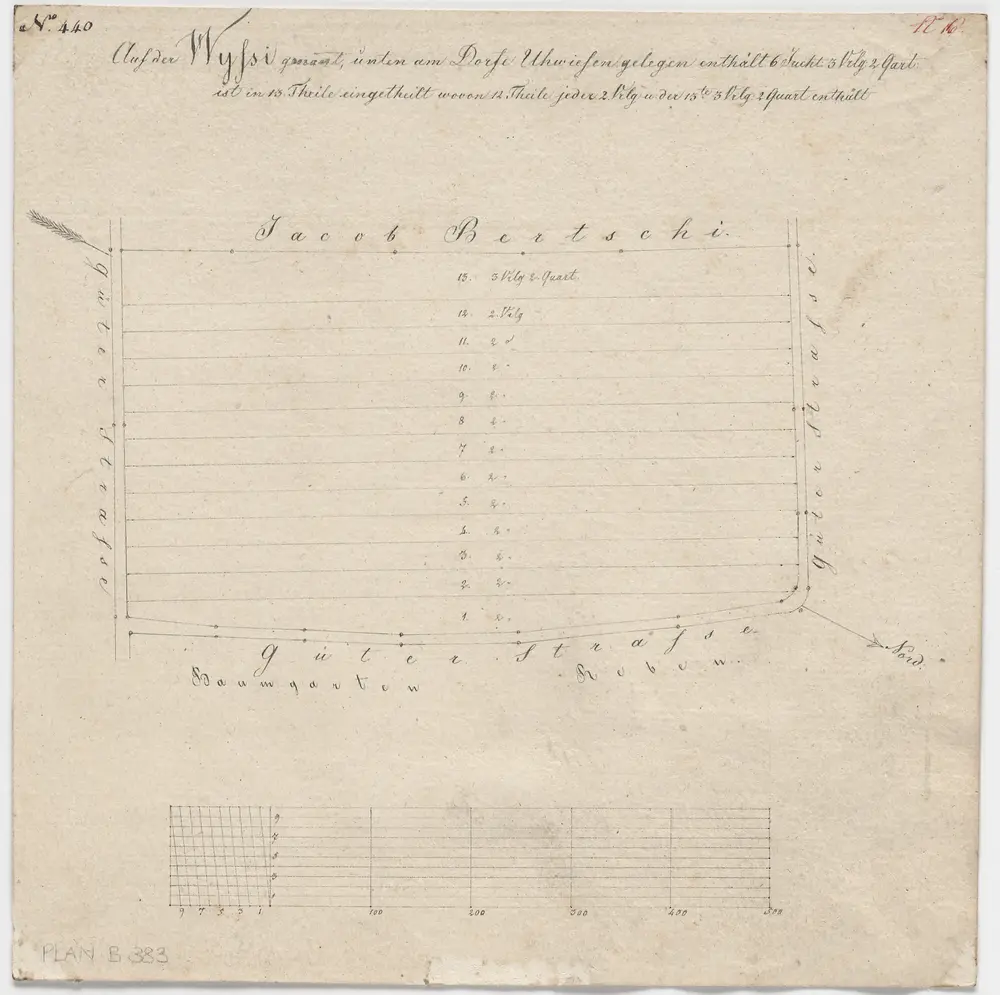 No. 440
Auf der Wyssi genant, unten am Dorfe Uhwiesen gelegen enthält 6 Jucht 3 Vrlg 2 Qart.
ist in 13 Theile eingetheilt wovon 12 Theile jeder 2 Vrlg u der 13te 3 Vrlg 2 Quart enthält
Jacob Bertschi.
13. 3 Vrlg 2 Quart
12. 2. Vrlg
11. 2
10. 2 "
9. 2 "
8. 2 "
7. 2 "
6. 2 "
5. 2 "
4. 2 "
3. 2 "
2. 2 "
1. 2 "
güter Strasse
güter Strasse.
Güter Strasse.
Baumgarten
Reben.
Nord.
9
7
5
3
1
9 7 5 3 1 100 200 300 400 500
PLAN B 383